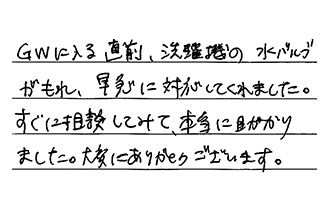 GWに入る直前、洗濯機の水バルブ
がもれ、早急に対応してくれました。
すぐに相談してみて、本当に助かり
ました。大変にありがとうございます。